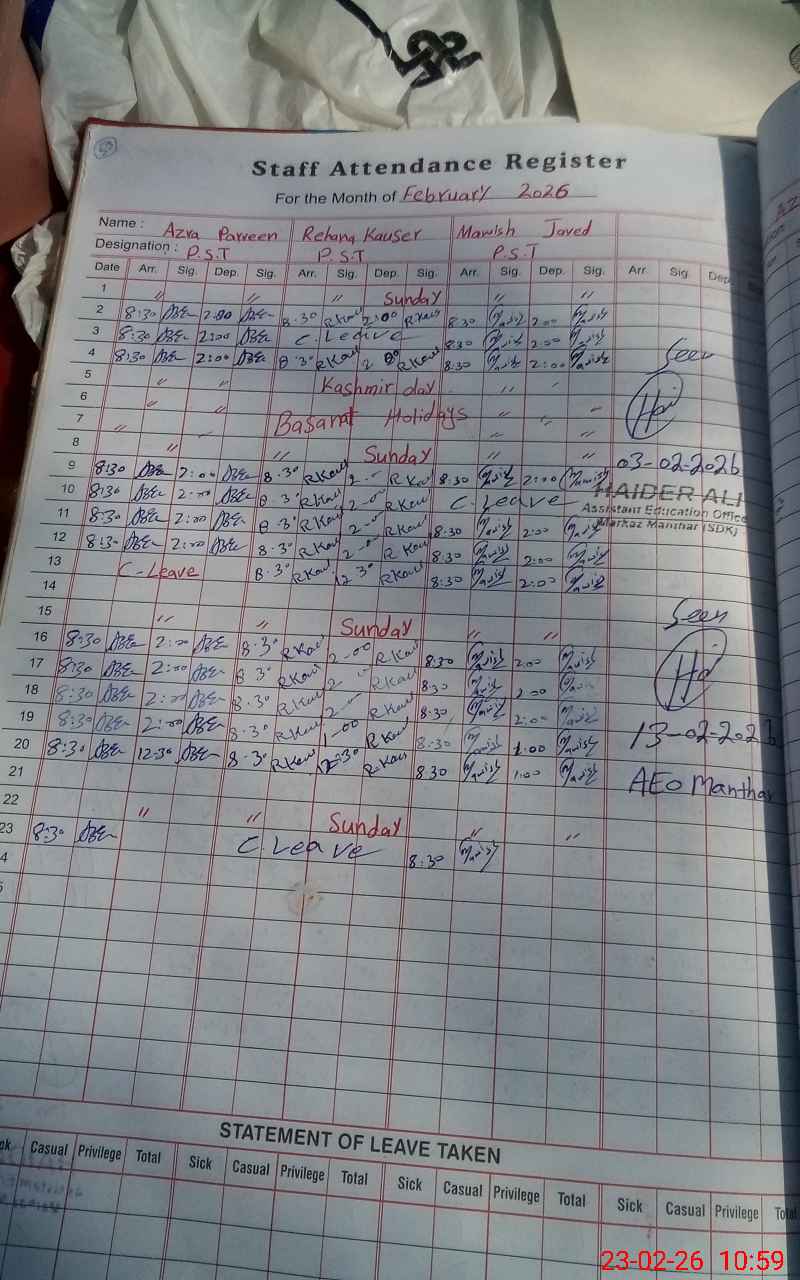 Staff Attendance Register
For the Month of February 2026
Name : Azra Parveen Rehana Kauser Mawish Javed
Designation : P.S.T P.S.T P.S.T
Date Arr. Sig. Dep. Sig. Arr. Sig. Dep. Sig. Arr. Sig. Dep. Sig. Arr. Sig. Dep
1 " " " Sunday " "
2 8:30 2:00 8.30 RKau 2:00 RKau 8:30 Mawish 2:00 Mawish
3 8:30 2:00 C. Leave 8:30 Mawish 2:00 Mawish
4 8:30 2:00 8.30 RKau 2.00 RKau 8:30 Mawish 2:00 Mawish
Seen
5 " " Kashmir day " "
6 " " Basant Holidays " " "
7
8 " " Sunday " "
03-02-2026
9 8:30 2:00 8.30 RKau 2.00 RKau 8:30 Mawish 2:00 Mawish
HAIDER ALI
10 8:30 2:00 8.30 RKau 2-00 RKau C. Leave
Assistant Education Office
11 8:30 2:00 8.30 RKau 2-00 RKau 8:30 Mawish 2:00 Mawish
Markaz Manthar (SDK)
12 8:30 2:00 8.30 RKau 2-00 RKau 8:30 Mawish 2:00 Mawish
13 C-Leave 8.30 RKau 12.30 RKau 8:30 Mawish 2:00 Mawish
14
Seen
15 " " Sunday " "
16 8:30 2:00 8.30 RKau 2-00 RKau 8:30 Mawish 2:00 Mawish
17 8:30 2:00 8.30 RKau 2 RKau 8:30 Mawish 2:00 Mawish
18 8:30 2:00 8.30 RKau 2 RKau 8:30 Mawish 2:00 Mawish
13-02-2026
19 8:30 2:00 8.30 RKau 1-00 RKau 8:30 Mawish 1:00 Mawish
20 8:30 12:30 8.30 RKau 12:30 RKau 8:30 Mawish 1:00 Mawish
AEO Manthar
21
22 " " Sunday " "
23 8:30 C. Leave 8:30 Mawish
4
5
STATEMENT OF LEAVE TAKEN
Casual Privilege Total Sick Casual Privilege Total Sick Casual Privilege Total Sick Casual Privilege Total
23-02-26 10:59